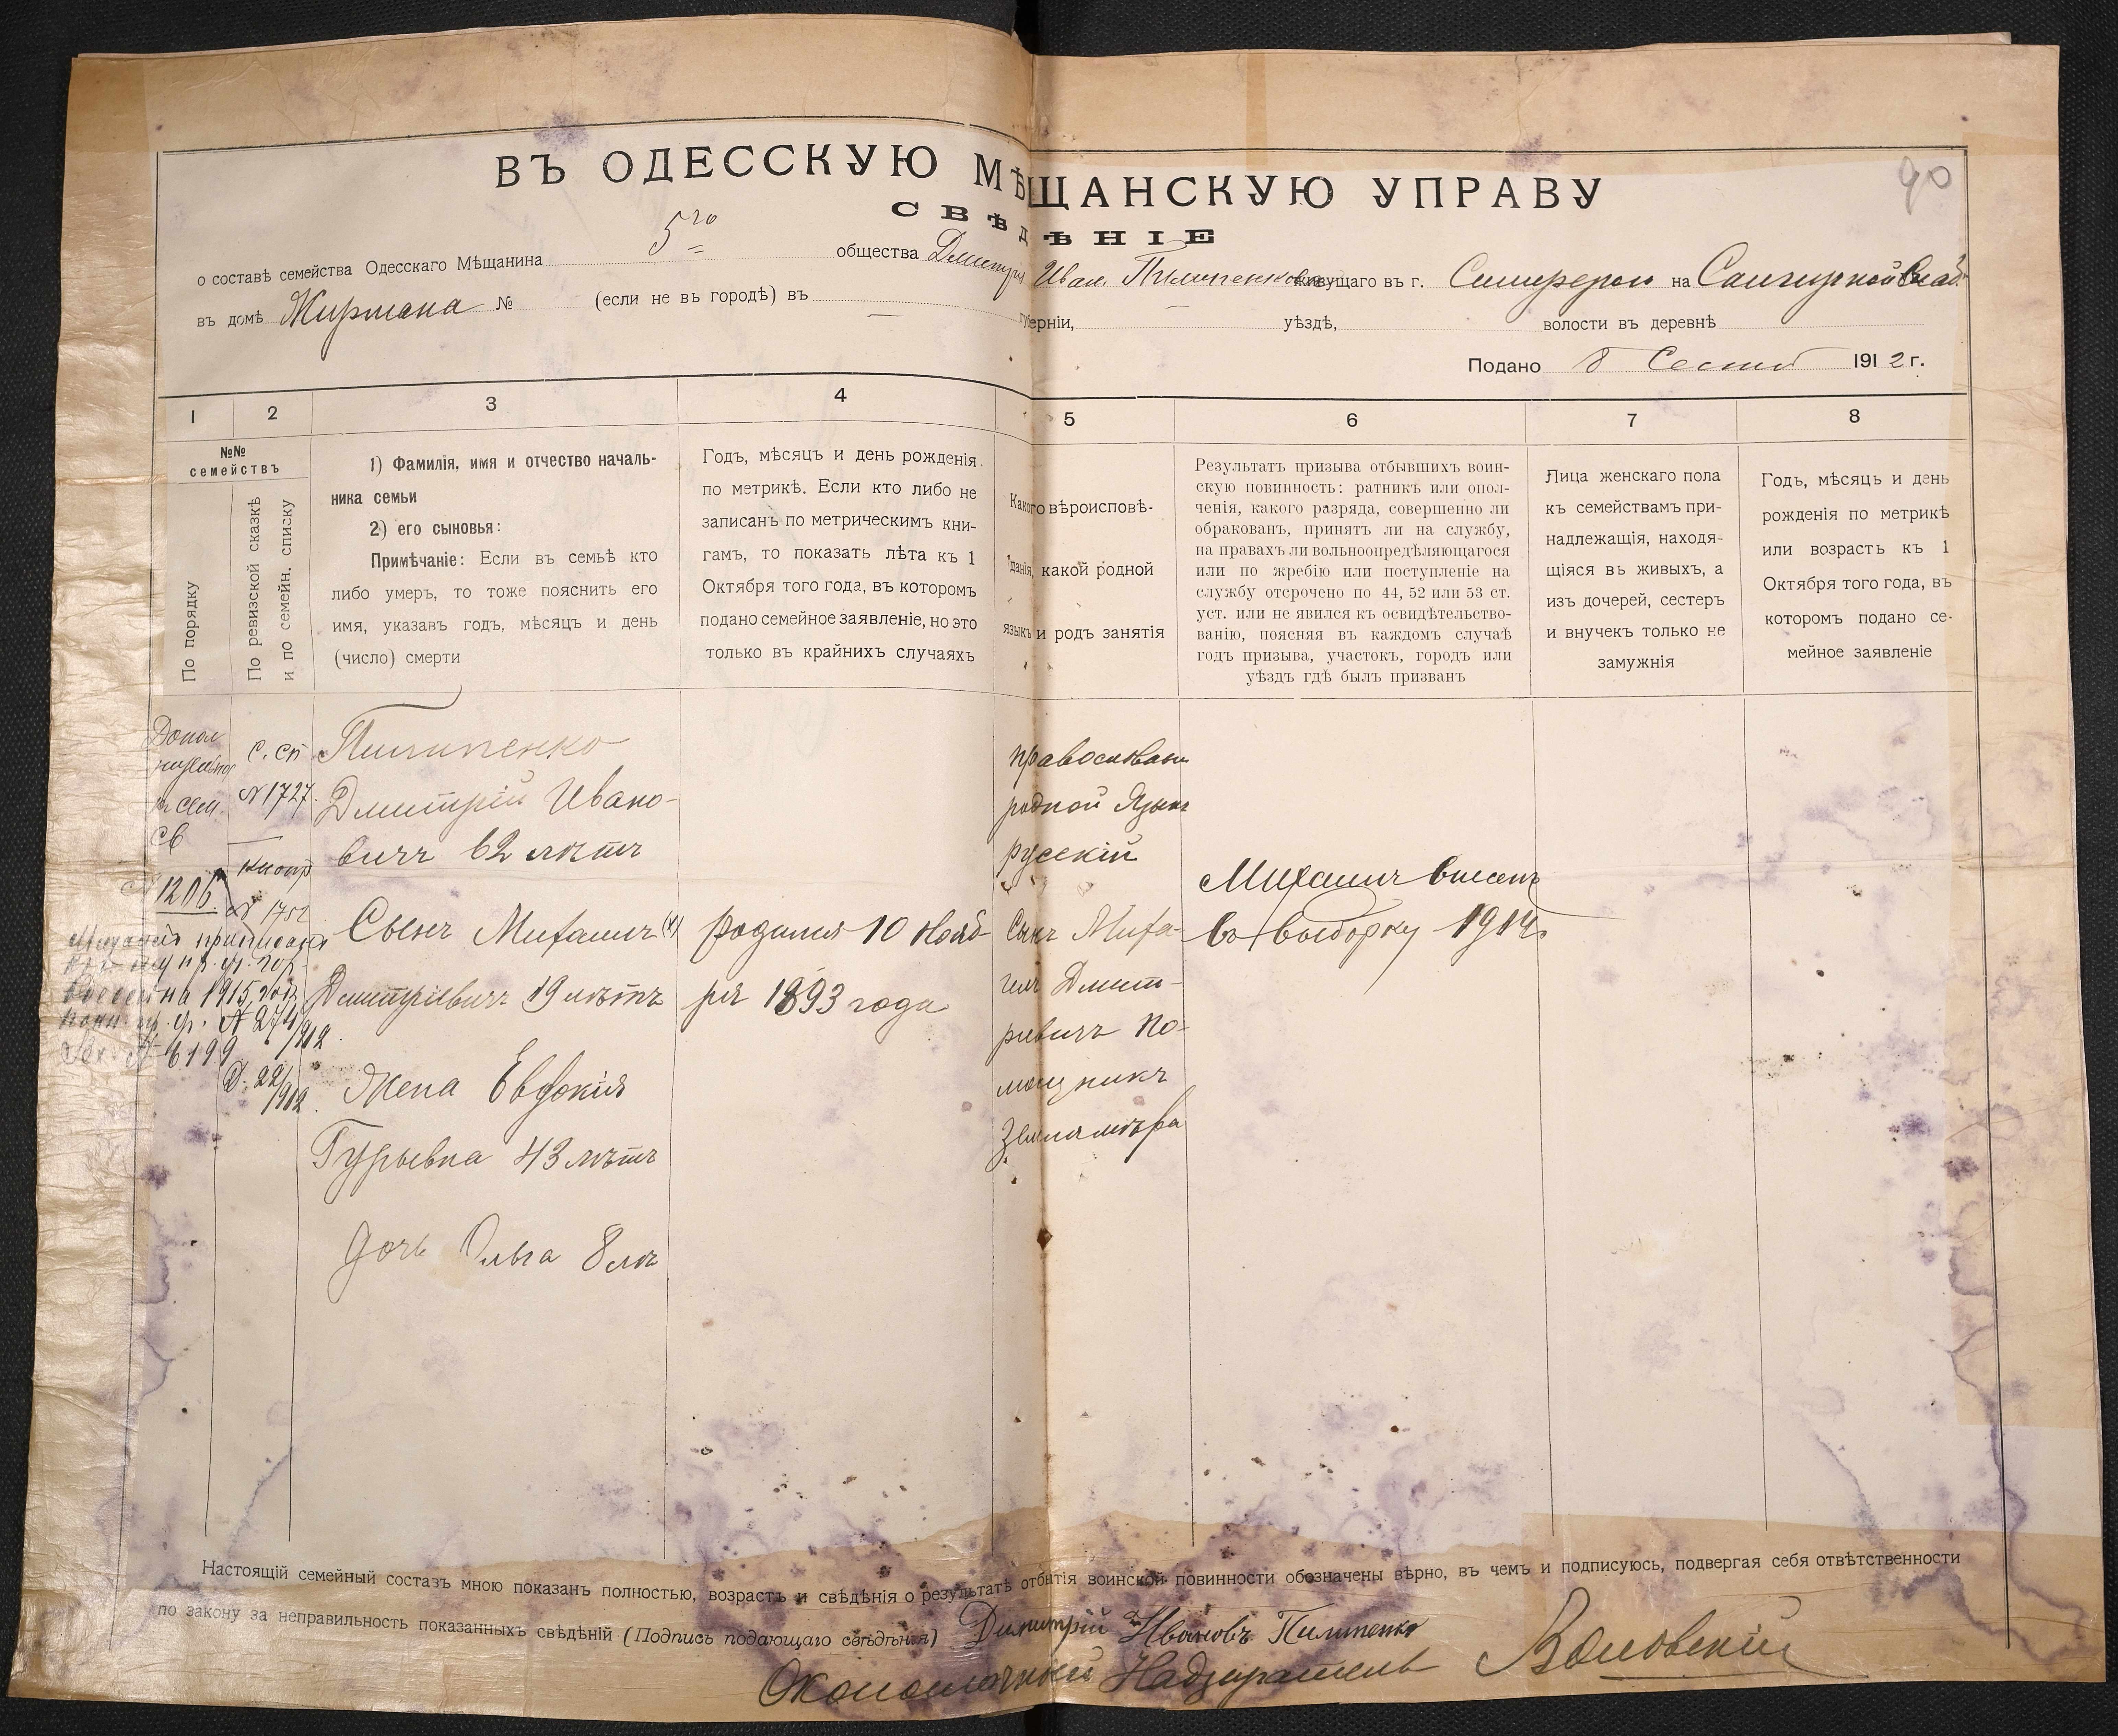 90
ВЪ ОДЕССКУЮ МѢЩАНСКУЮ УПРАВУ
СВѢДѢНІЕ
о составѣ семейства Одесскаго Мѣщанина 5го общества Дмитрія Иван. Пилипенкова живущаго въ г. на
въ домѣ № (если не въ городѣ) въ — губерніи, уѣздѣ, волости въ деревнѣ
Подано 8 1912 г.
1 2 3 4 5 6 7 8
№№
семействъ
По порядку
По ревизской сказкѣ
и по семейн. списку
1) Фамилія, имя и отчество началь-
ника семьи
2) его сыновья:
Примѣчаніе: Если въ семьѣ кто
либо умеръ, то тоже пояснить его
имя, указавъ годъ, мѣсяцъ и день
(число) смерти
Годъ, мѣсяцъ и день рожденія
по метрикѣ. Если кто либо не
записанъ по метрическимъ кни-
гамъ, то показать лѣта къ 1
Октября того года, въ которомъ
подано семейное заявленіе, но это
только въ крайнихъ случаяхъ
Какого вѣроисповѣ-
данія, какой родной
языкъ и родъ занятія
Результатъ призыва отбывшихъ воин-
скую повинность: ратникъ или опол-
ченія, какого разряда, совершенно ли
обракованъ, принятъ ли на службу,
на правахъ ли вольноопредѣляющагося
или по жребію или поступленіе на
службу отсрочено по 44, 52 или 53 ст.
уст. или не явился къ освидѣтельство-
ванію, поясняя въ каждомъ случаѣ
годъ призыва, участокъ, городъ или
уѣздъ гдѣ былъ призванъ
Лица женскаго пола
къ семействамъ при-
надлежащія, находя-
щіяся въ живыхъ, а
изъ дочерей, сестеръ
и внучекъ только не
замужнія
Годъ, мѣсяцъ и день
рожденія по метрикѣ
или возрастъ къ 1
Октября того года, въ
которомъ подано се-
мейное заявленіе
къ сем.
св
№ 1206.
на 1915 годъ
№ 274/912.
№ 6199
С. сп
№ 1727.
№ 1752
Д. 22/912.
Пилипенко
Дмитрій Ивано-
вичъ 62 лѣтъ
Сынъ Михаилъ
Дмитріевичъ 19 лѣтъ
Жена Евдокія
Гурьевна 43 лѣтъ
дочь Ольга 8 лѣ
родился 10 Нояб-
ря 1893 года
православн
родной Языкъ
русскій
Сынъ Миха-
илъ Дмит-
ріевичъ по-
мощникъ
Землемѣра
Михаилъ внесенъ
во выборку 1914.
Настоящій семейный составъ мною показанъ полностью, возрастъ и свѣдѣнія о результатѣ отбытія воинской повинности обозначены вѣрно, въ чемъ и подписуюсь, подвергая себя отвѣтственности
по закону за неправильность показанныхъ свѣдѣній (Подпись подающаго свѣдѣнія) Димитрій Ивановъ Пилипенко
Околоточный Надзиратель